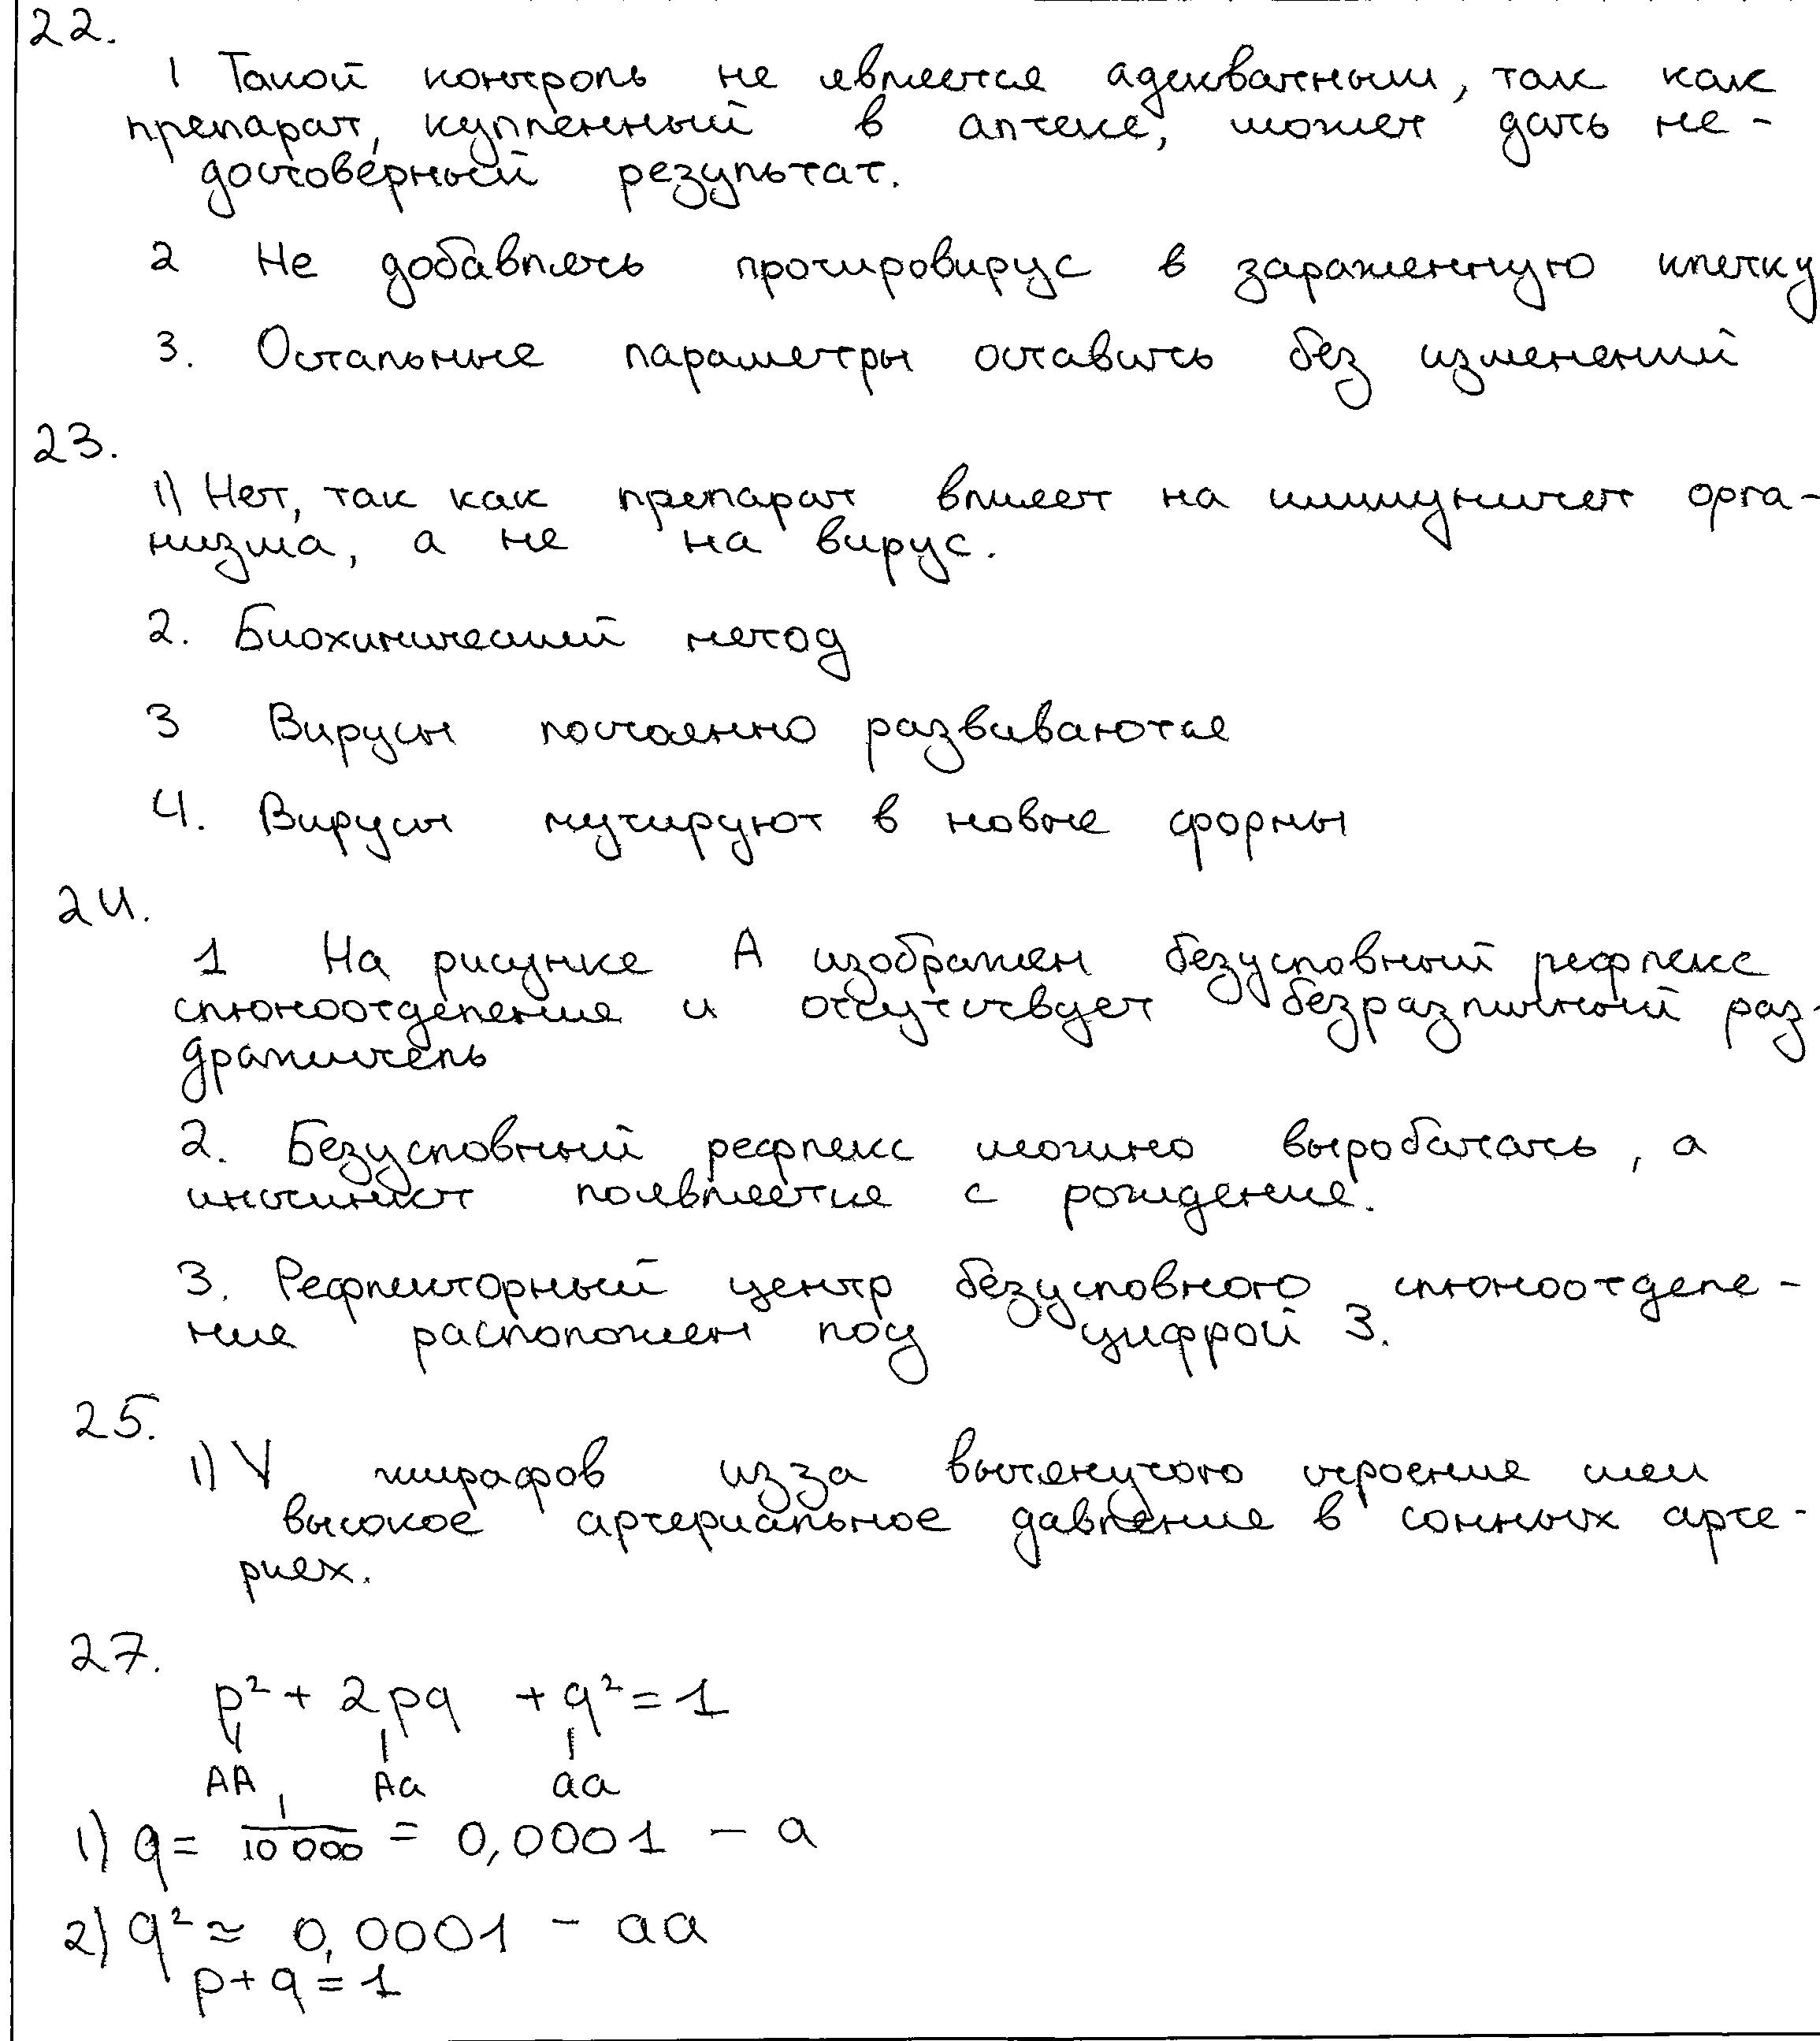 22.
1 Такой контроль не является адекватным, так как
препарат, купленный в аптеке, может дать не-
достоверный результат.
2 Не добавлять протировирус в зараженную клетку
3. Остальные параметры оставить без изменений
23.
1) Нет, так как препарат влияет на иммунитет орга-
низма, а не на вирус.
2. Биохимический метод
3 Вирусы постоянно развиваются
4. Вирусы мутируют в новые формы
24.
1 На рисунке А изображен безусловный рефлекс
слюноотделения и отсутствует безразличный раз-
дражитель
2. Безусловный рефлекс можно выробатать, а
инстинкт появляется с рождения.
3. Рефлекторный центр безусловного слюноотделе-
ния расположен под цифрой 3.
25.
1) У жирафов из за вытянутого строения шеи
высокое артериальное давление в сонных арте-
риях.
27.
p² + 2pq + q² = 1
AA Aa aa
1) q = 1/10 000 = 0,0001 - a
2) q² ≈ 0,0001 - aa
p + q = 1